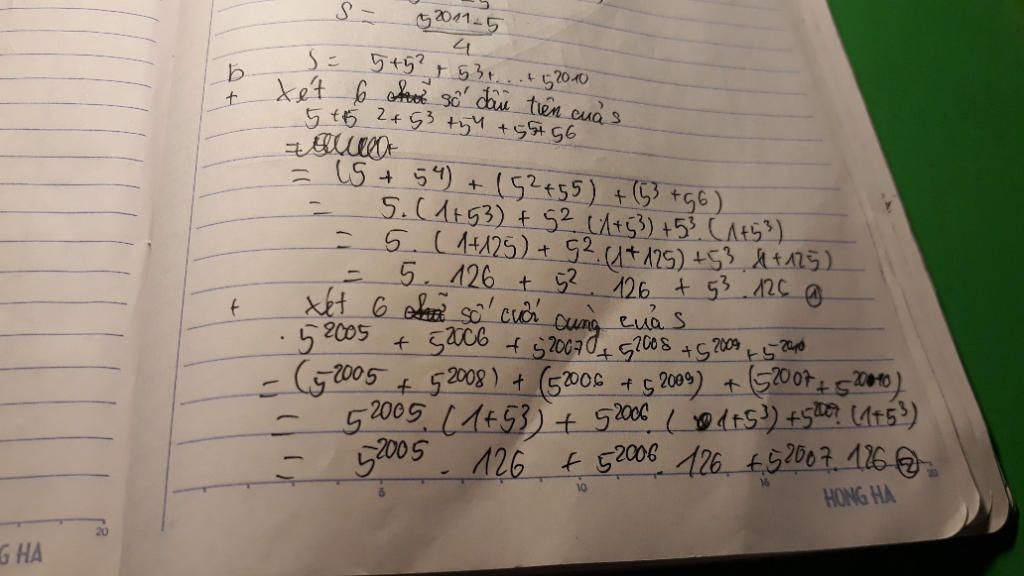 S = 5^2011 - 5
4
b S = 5 + 5^2 + 5^3 + ... + 5^2010
+ Xét 6 số đầu tiên của S
5 + 5^2 + 5^3 + 5^4 + 5^5 + 5^6
= (5 + 5^4) + (5^2 + 5^5) + (5^3 + 5^6)
= 5.(1+5^3) + 5^2.(1+5^3) + 5^3.(1+5^3)
= 5.(1+125) + 5^2.(1+125) + 5^3.(1+125)
= 5.126 + 5^2.126 + 5^3.126 ①
+ xét 6 số cuối cùng của S
5^2005 + 5^2006 + 5^2007 + 5^2008 + 5^2009 + 5^2010
= (5^2005 + 5^2008) + (5^2006 + 5^2009) + (5^2007 + 5^2010)
= 5^2005.(1+5^3) + 5^2006.(1+5^3) + 5^2007.(1+5^3)
= 5^2005.126 + 5^2006.126 + 5^2007.126 ②
5 10 15 20
HONG HA
20
G HA